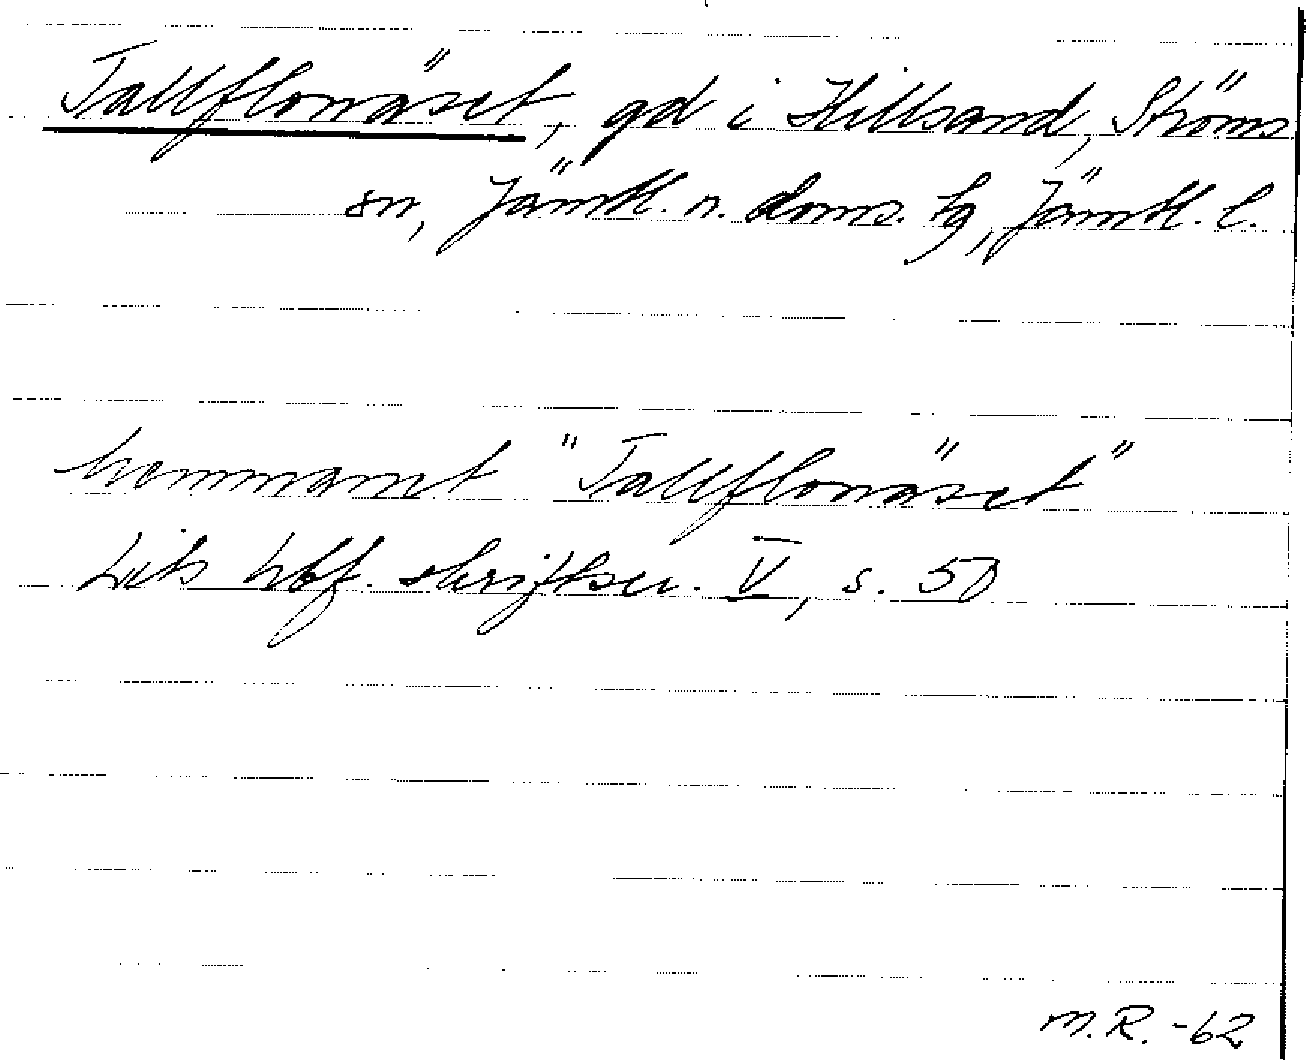 Tallflonäset, gd i Hillsand, Ströms
sn, Jämtl. n. doms. tg, Jämtl. l.
hemmanet "Tallflonäset"
Lits hbf. skriftser. V, s. 50
M.R. -62